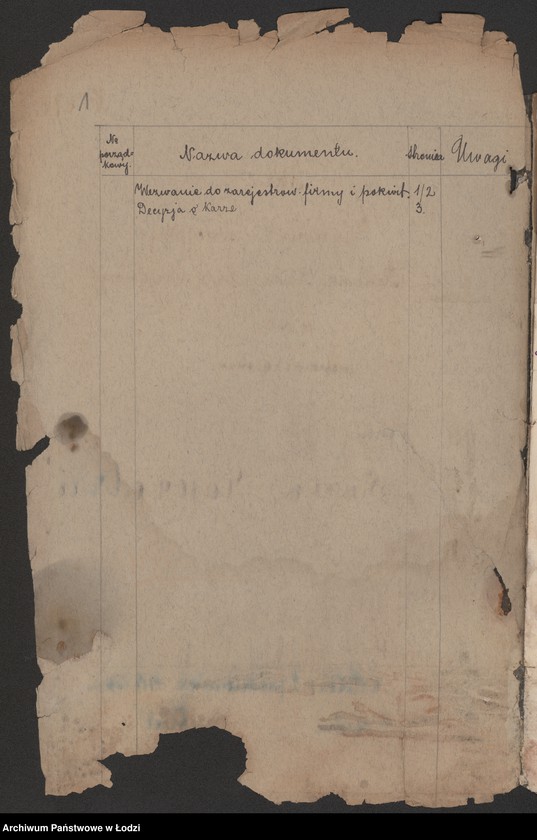 1
Nr porząd-
kowy.
Nazwa dokumentu.
Stronica
Uwagi
Wezwanie do zarejestrow. firmy i pokwit. 1/2
Decyzja o karze 3.
Archiwum Państwowe w Łodzi